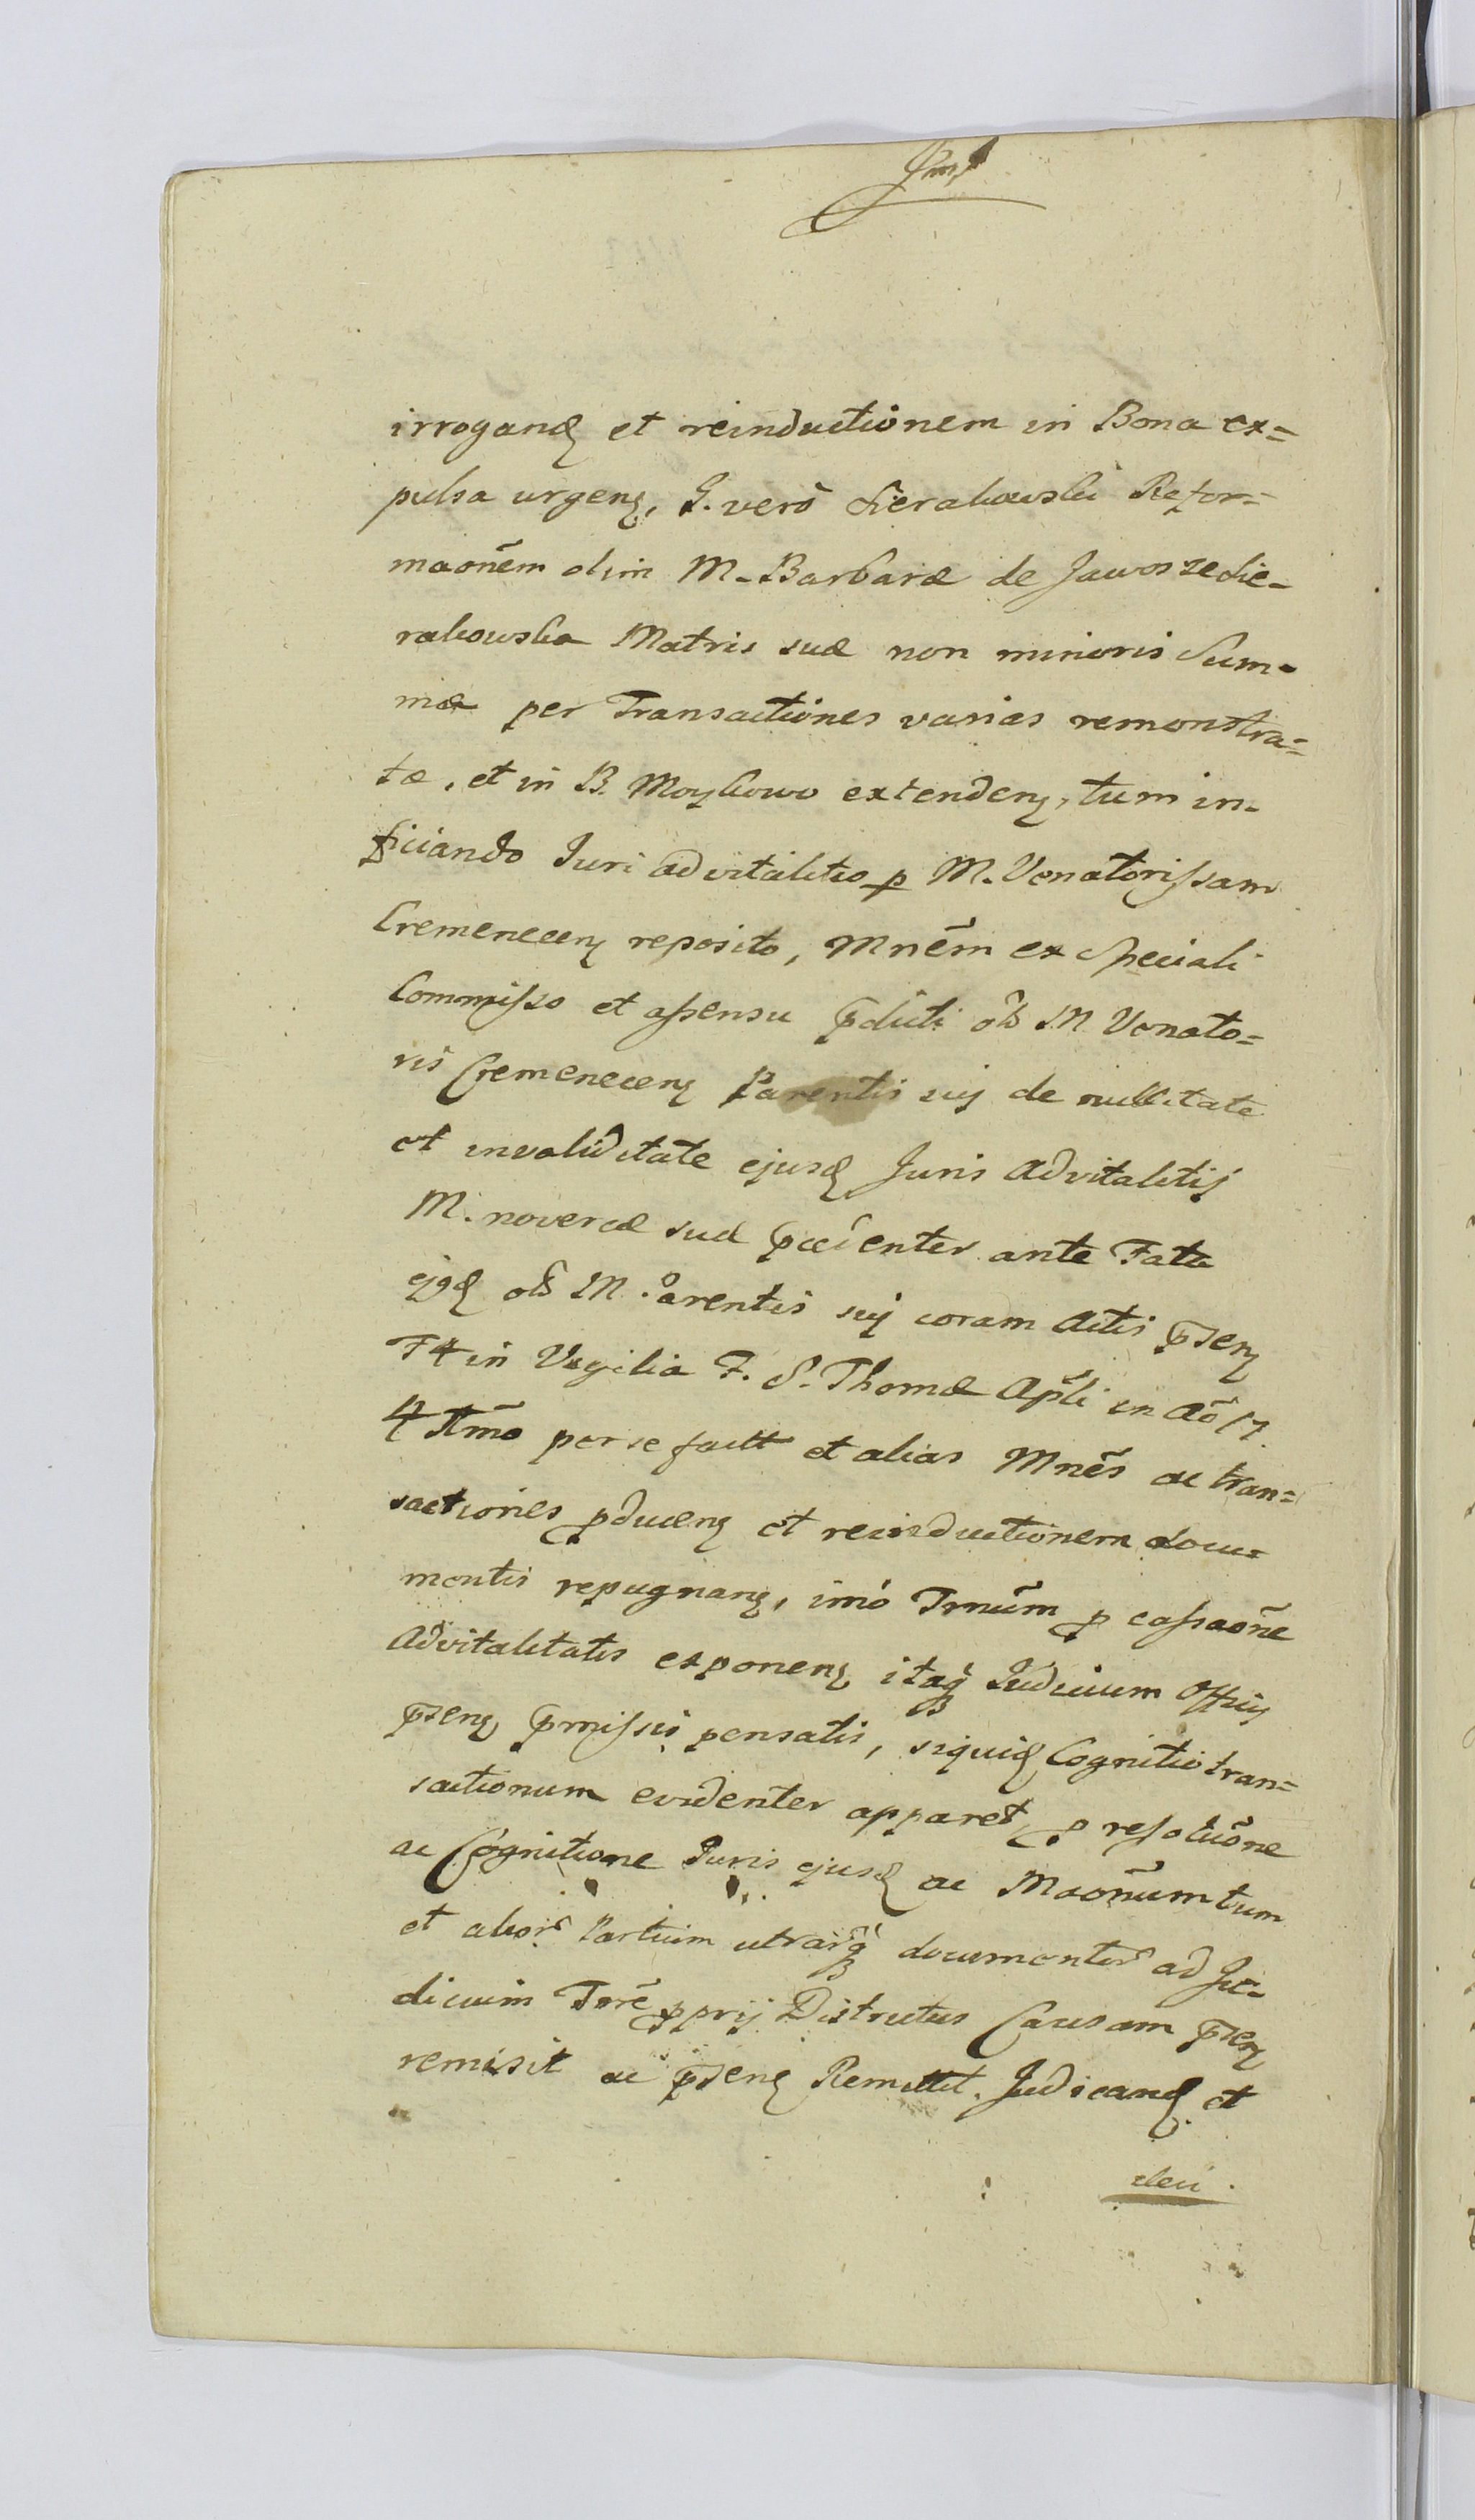 irrogand et reinductionem in Bona ex=
pulsa urgen, G. verò Sierakowski Refor=
maõnem olim M. Barbaræ de Jawor Sie=
rakowska Matris suæ non minoris Sum=
mæ per Transactiones varias remonstra=
tæ, et in B. Moykowo extenden, tum in=
ficiando Juri advitalitio p M. Venatorissam
Cremenecen reposito, Mnẽm ex speciali
Commisso et assensu pduti olb M Venato=
ris Cremenecen Parentis sui de nullitate
et invaliditate ejusd Juris advitalitij
M. novercæ suæ ante Fata
ejgd olb M. Parentis sui coram Actis psen
F4 in Vigilia F. S. Thomæ Apli in Aõ 17.
4 per se fact et alias Mnẽs ac tran=
sactiones pducen et reinductionem docu=
mentis repugnan, imò Trnũm p cassaõne
Advitalitatis exponen itaq Judicium Officij
psen pmissis pensatis, siquid Cognitio tran=
sactionum evidenter apparet, p resolutiõne
ac Cognitione Juris ejusd ac Maõnum tum
et alior Partium utrarq documentor ad Ju=
dicium Trrẽ pprij Districtus Causam psen
remisit ac psens Remittit. Judicand et
deci.